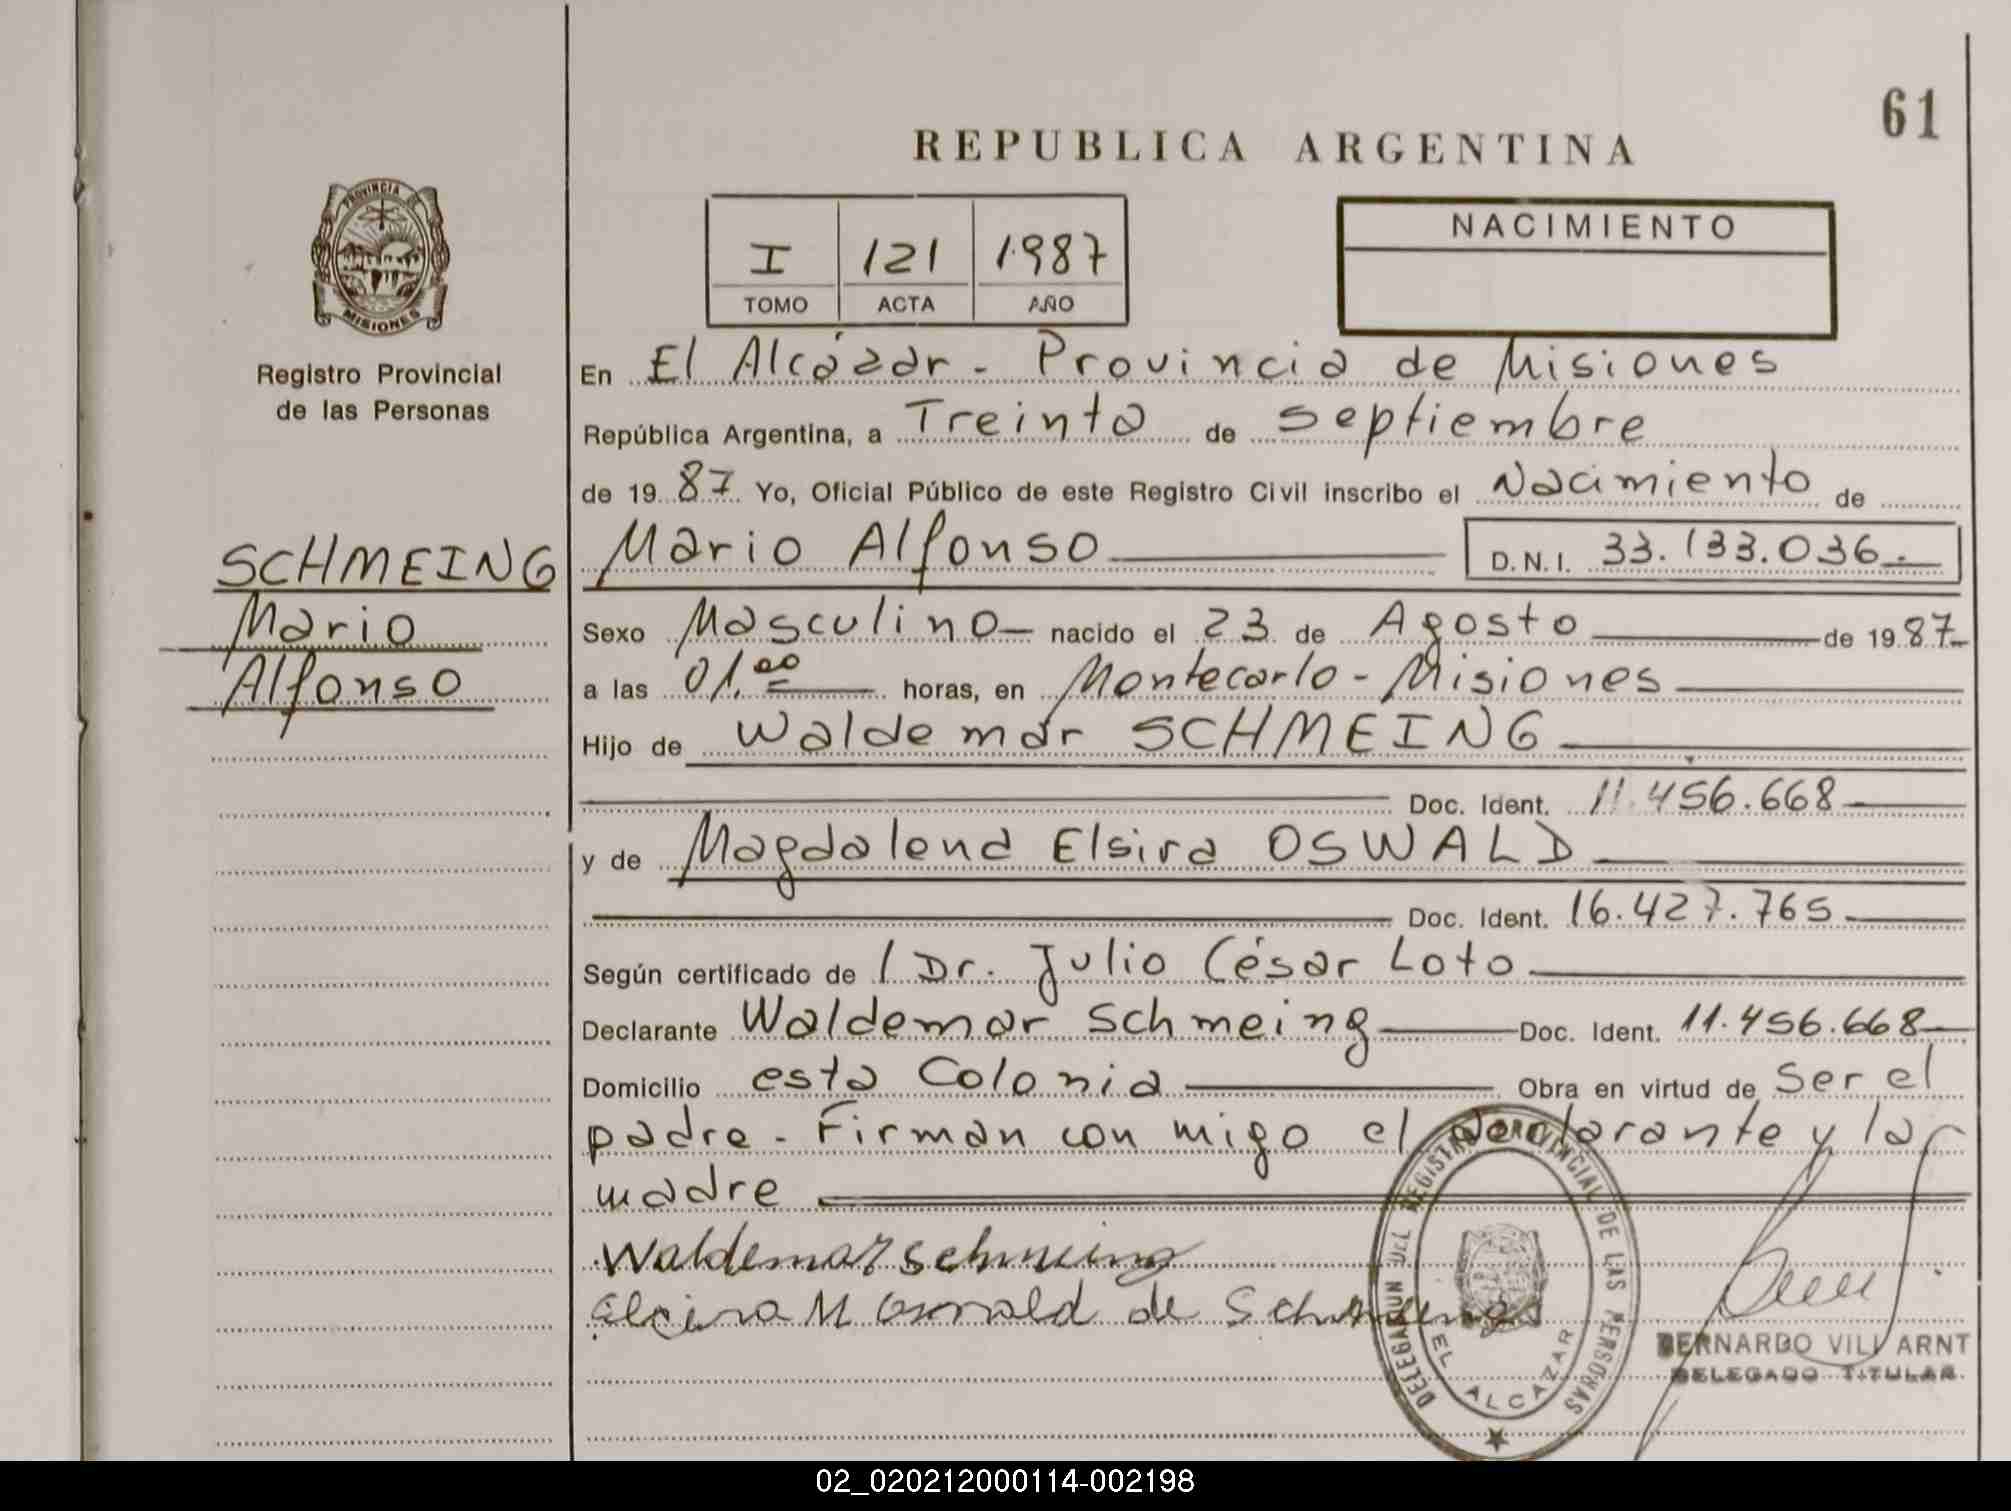 61
REPUBLICA ARGENTINA
PROVINCIA DE
MISIONES
Registro Provincial
de las Personas
I 121 1987
TOMO ACTA AÑO
NACIMIENTO
En El Alcázar - Provincia de Misiones
República Argentina, a Treinta de septiembre
de 19 87 Yo, Oficial Público de este Registro Civil inscribo el Nacimiento de
SCHMEING
Mario
Alfonso
Mario Alfonso D.N.I. 33.133.036.-
Sexo Masculino nacido el 23 de Agosto de 19 87
a las 01.00 horas, en Montecarlo - Misiones
Hijo de Waldemar SCHMEING
Doc. Ident. 11.456.668
y de Magdalena Elsira OSWALD
Doc. Ident. 16.427.765
Según certificado de / Dr. Julio César Loto
Declarante Waldemar Schmeing Doc. Ident. 11.456.668
Domicilio esta Colonia Obra en virtud de Ser el
padre - Firman con migo el declarante y la
madre
Waldemar schmeing
Elcira M Oswald de Schmeing
DELEGACION DEL REGISTRO PROVINCIAL DE LAS PERSONAS
EL ALCAZAR
BERNARDO VILL ARNT
DELEGADO TITULAR
02_020212000114-002198